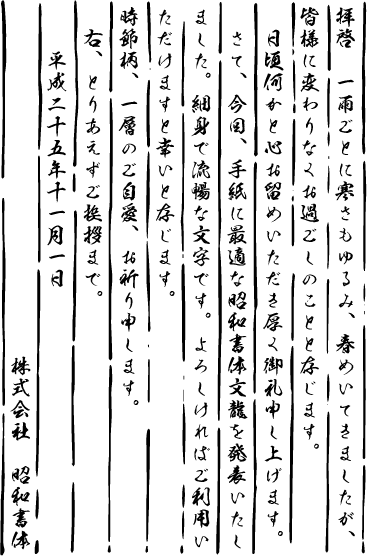 拝啓　一雨ごとに寒さもゆるみ、春めいてきましたが、
皆様に変わりなくお過ごしのことと存じます。
日頃何かと心お留めいただき厚く御礼申し上げます。
さて、今回、手紙に最適な昭和書体文龍を発表いたし
ました。細身で流暢な文字です。よろしければご利用い
ただけますと幸いと存じます。
時節柄、一層のご自愛、お祈り申します。
右、とりあえずご挨拶まで。
平成二十五年十一月一日
株式会社　昭和書体